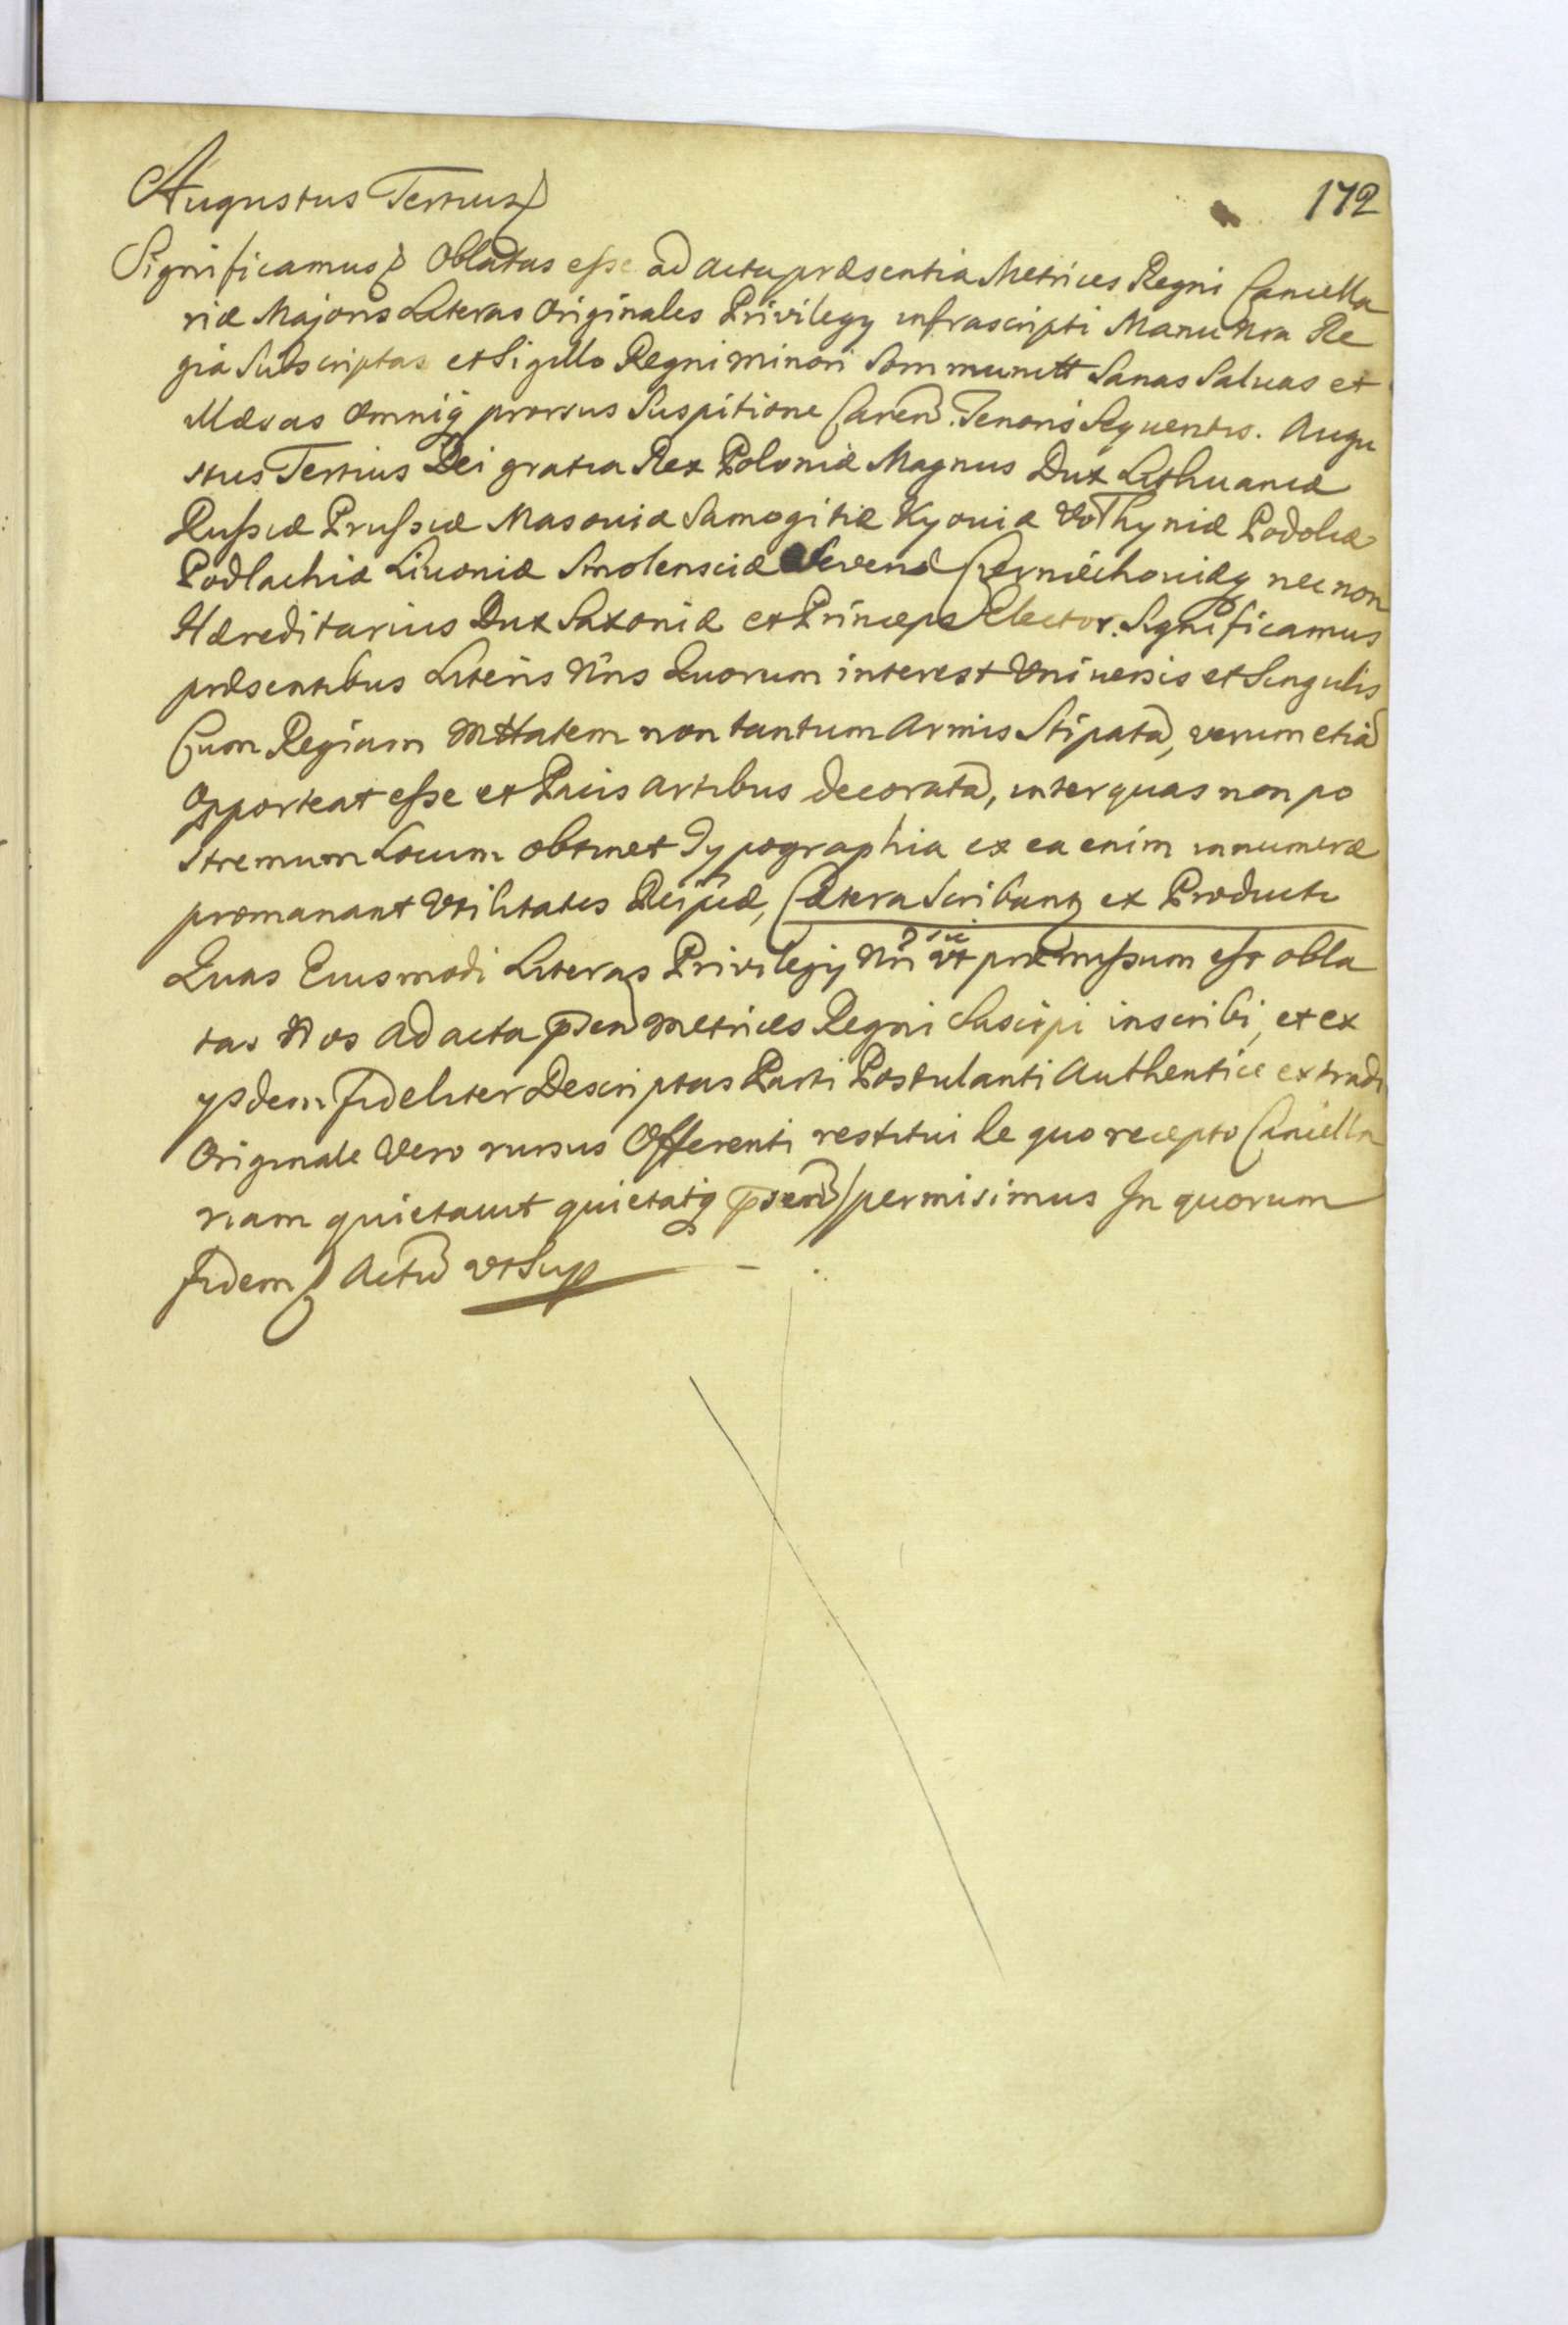 172
Augustus Tertius
Significamus Oblatas esse ad acta præsentia Metrices Regni Cancella
riæ Majoris Literas Originales Privilegy infrascripti Manu Nra Re
gia Subscriptas et Sigillo Regni minori Communitt Sanas Saluas et
Illæsas Omniq prorsus Suspitione Caren. Tenoris Sequentis. Augu
stus Tertius Dei gratia Rex Poloniæ Magnus Dux Lithuaniæ
Russiæ Prussiæ Masouiæ Samogitiæ Kyouiæ Volhyniæ Podoliæ
Podlachiæ Liuoniæ Smolensciæ Severiæ Czerniechouiæq nec non
Hæreditarius Dux Saxoniæ et Princeps Elector. Significamus
præsentibus Literis Nris Quorum interest Vniuersis et Singulis
Cum Regiam Mttatem non tantum Armis Stipatã, verum etiã
Opporteat esse et Pacis Artibus decoratã, inter quas non po
stremum Locum obtinet Typographia ex ea enim innumeræ
promanant Vtilitates Reipcæ, Cætera Scribantz ex Producto
Quas Eiusmodi Literas Privilegij Nri vt præmissum est obla
sic
tas Nos ad acta psen Metrices Regni Suscipi inscribi, et ex
ysdem fideliter Descriptas Parti Postulanti Authentice extradi
Originale Vero rursus Offerenti restitui de quo recepto Cancella
riam quietauit quietatq psen permisimus In quorum
fidem Actũ vt Sup